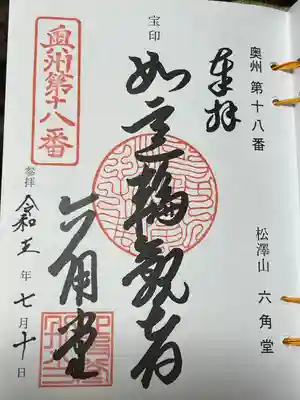 奥州 第十八番
松澤山 六角堂
奉拝
宝印
如意輪観音
六角堂
奥州第十八番
参拝 令和五年七月十日